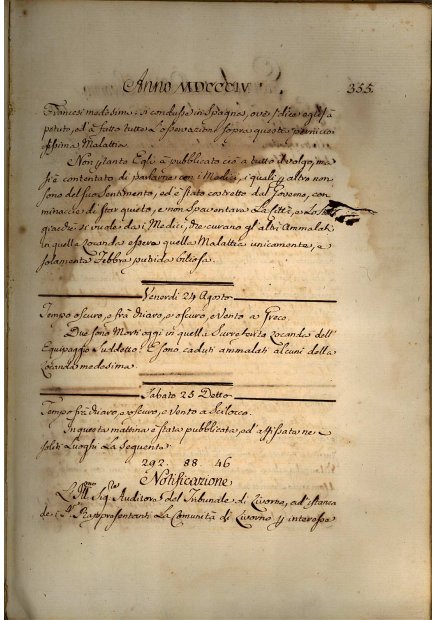 Anno MDCCCIV. 355.
Francesi medesimi: si condusse in Spagna, ove si dice egli à
potuto, ed à fatto tutte l'osservazioni sopra queste pernicio
sissima Malattia.
Non stante Egli à pubblicato ciò a tutto il volgo, ma
si è contentato di parlarne con i Medici, i quali p altro non
sono del suo sentimento, ed è stato costretto dal Governo, con
minaccie di star quieto, e non spaventare la Città, e
si vuole da i Medici, che curano gl'altri Ammalati
in quella Locanda essere quella Malattia unicamente, e
solamente Febbre putrida biliosa.
Venerdì 24 Agosto
Tempo oscuro, e frà chiaro, e oscuro, e vento a Greco.
Due sono Morti oggi in quella Locanda dell'
Equipaggio suddetto. E sono caduti ammalati alcuni della
Locanda medesima.
Sabato 25 Detto
Tempo frà chiaro, e oscuro, e vento a Scilocco.
In questa mattina è stata pubblicata, ed affissata ne i
soliti Luoghi la seguente
292. 88. 46
Notificazione
L'Ill.mo Sig.re Auditore del Tribunale di Livorno, ad istanza
de i SS.ri Rappresentanti la Comunità di Livorno p interesse